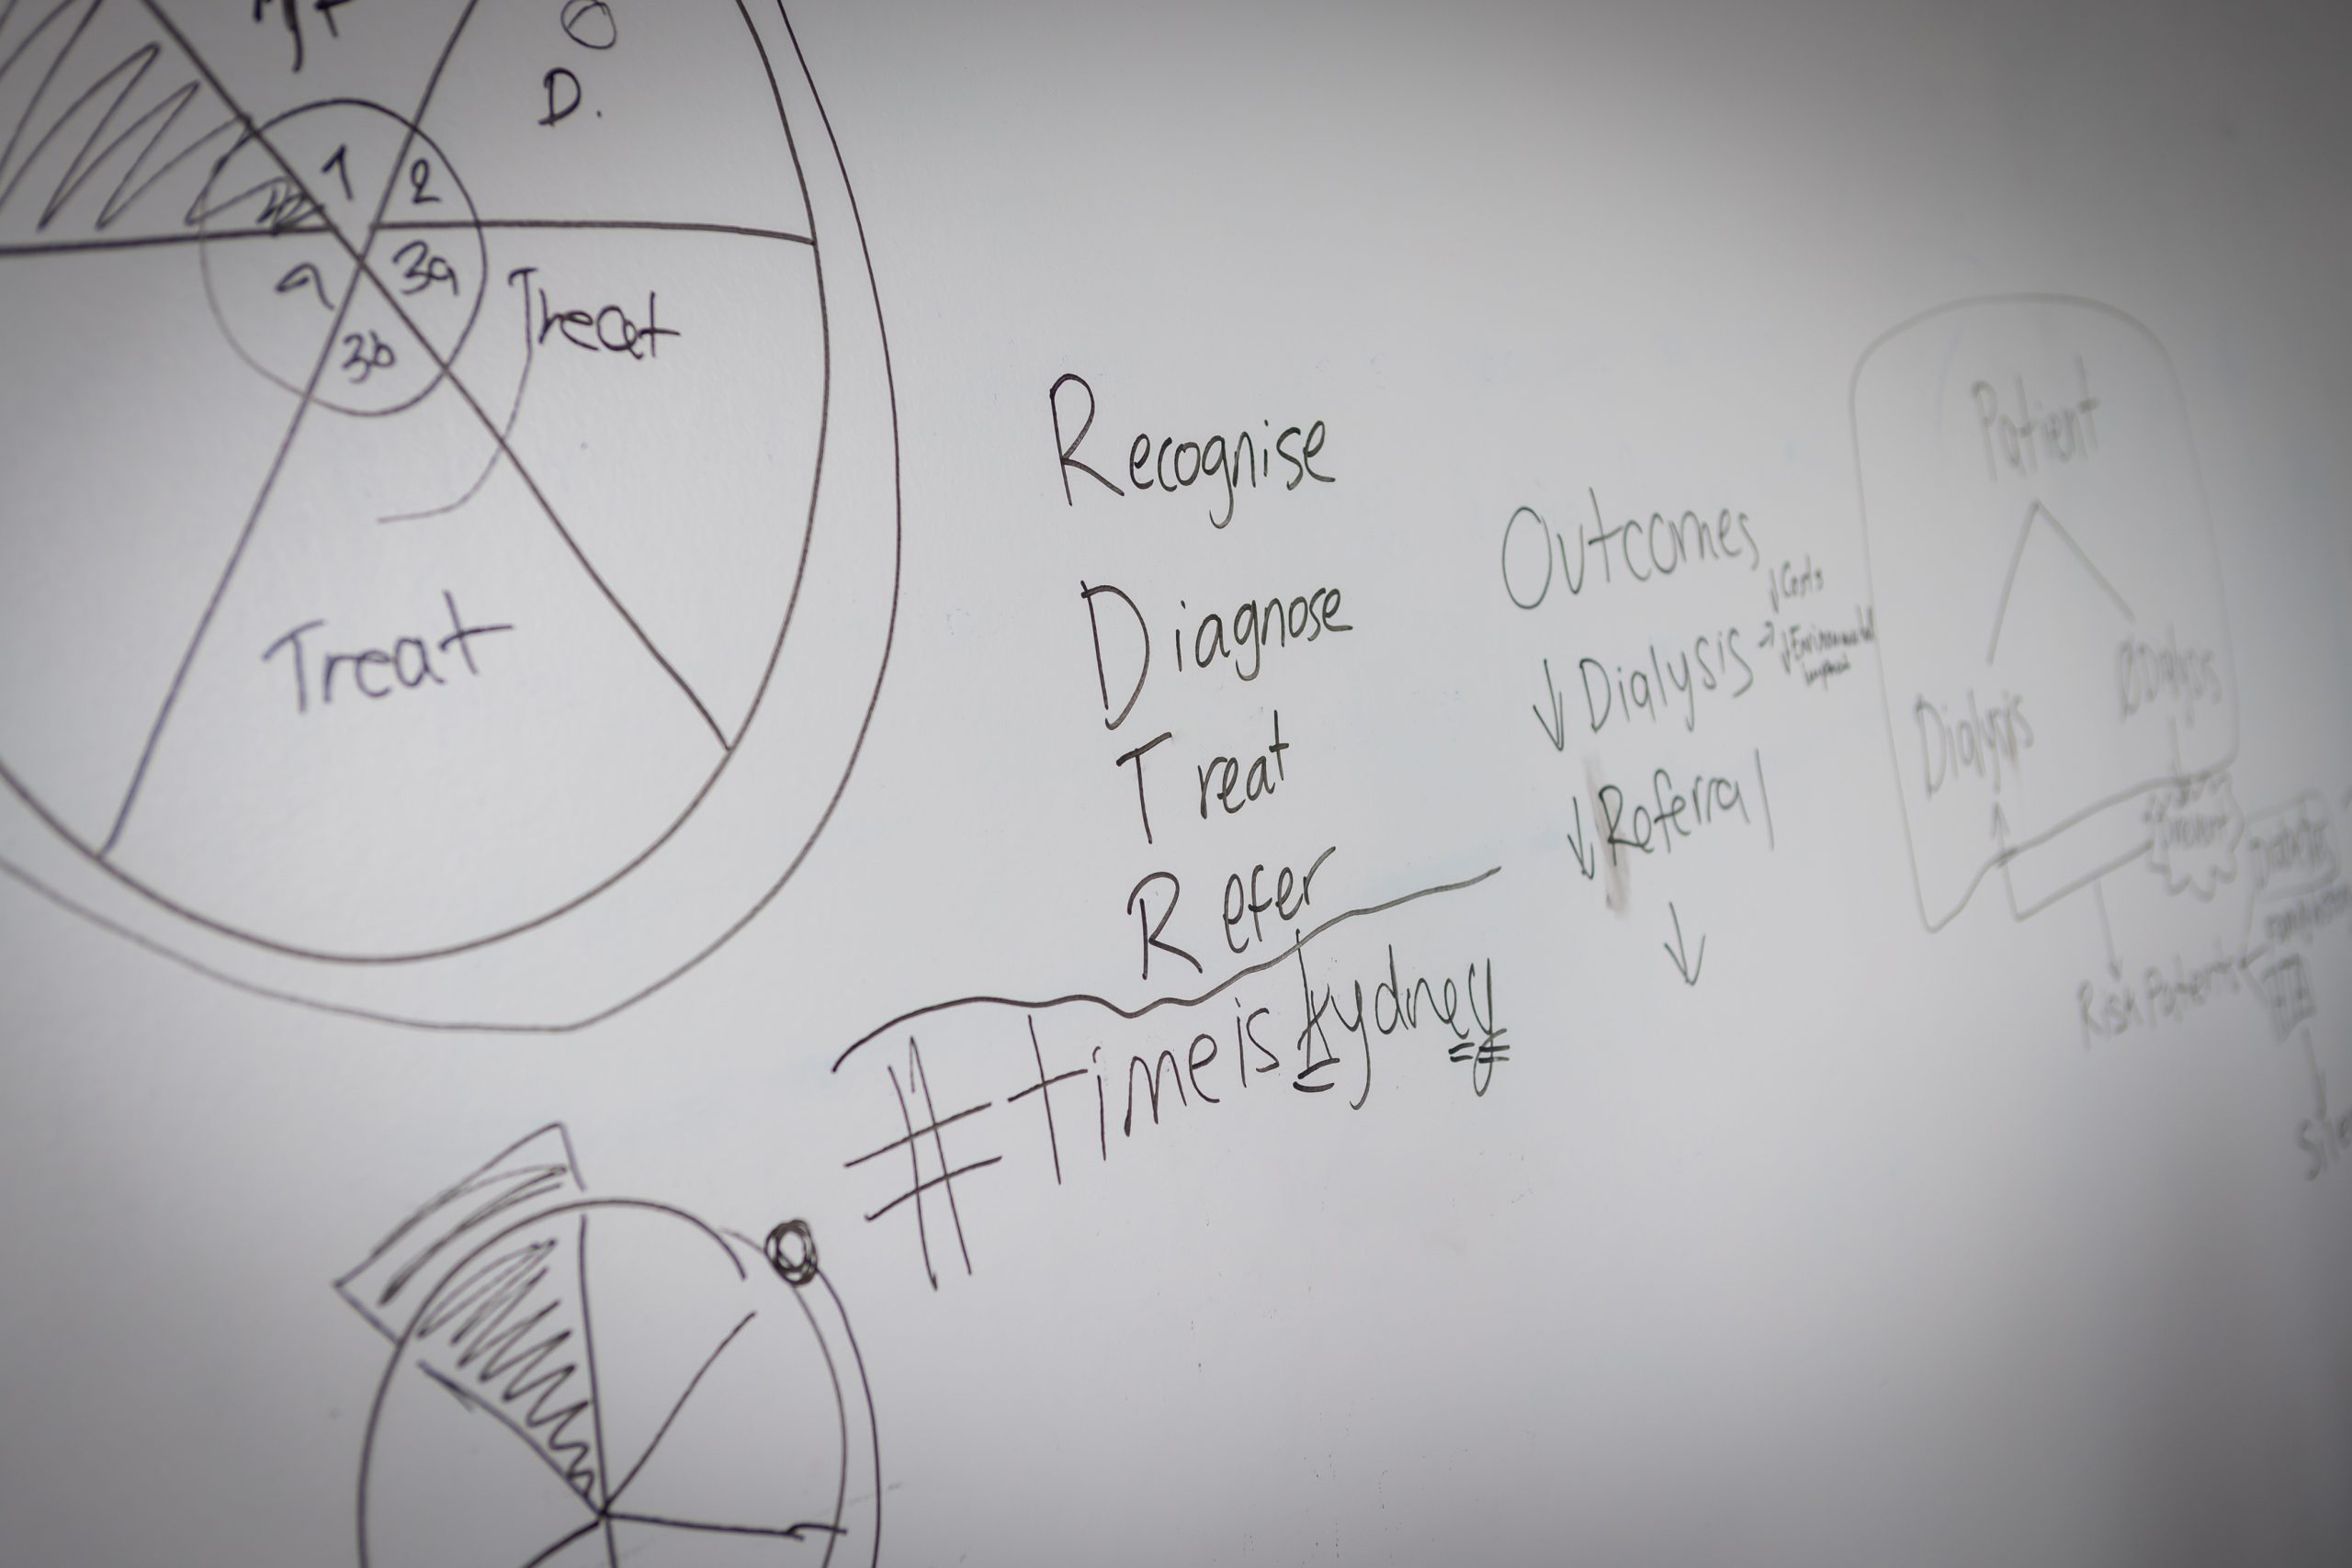 D.
1 2
3a
3b
Treat
Treat
Recognise
Diagnose
Treat
Refer
#timeiskydney
Outcomes
↓ Dialysis → ↓ Costs
↓ Environmental
impact
↓ Referral
↓
Patient
Dialysis
Ø Dialysis
prevent
Risk Patients